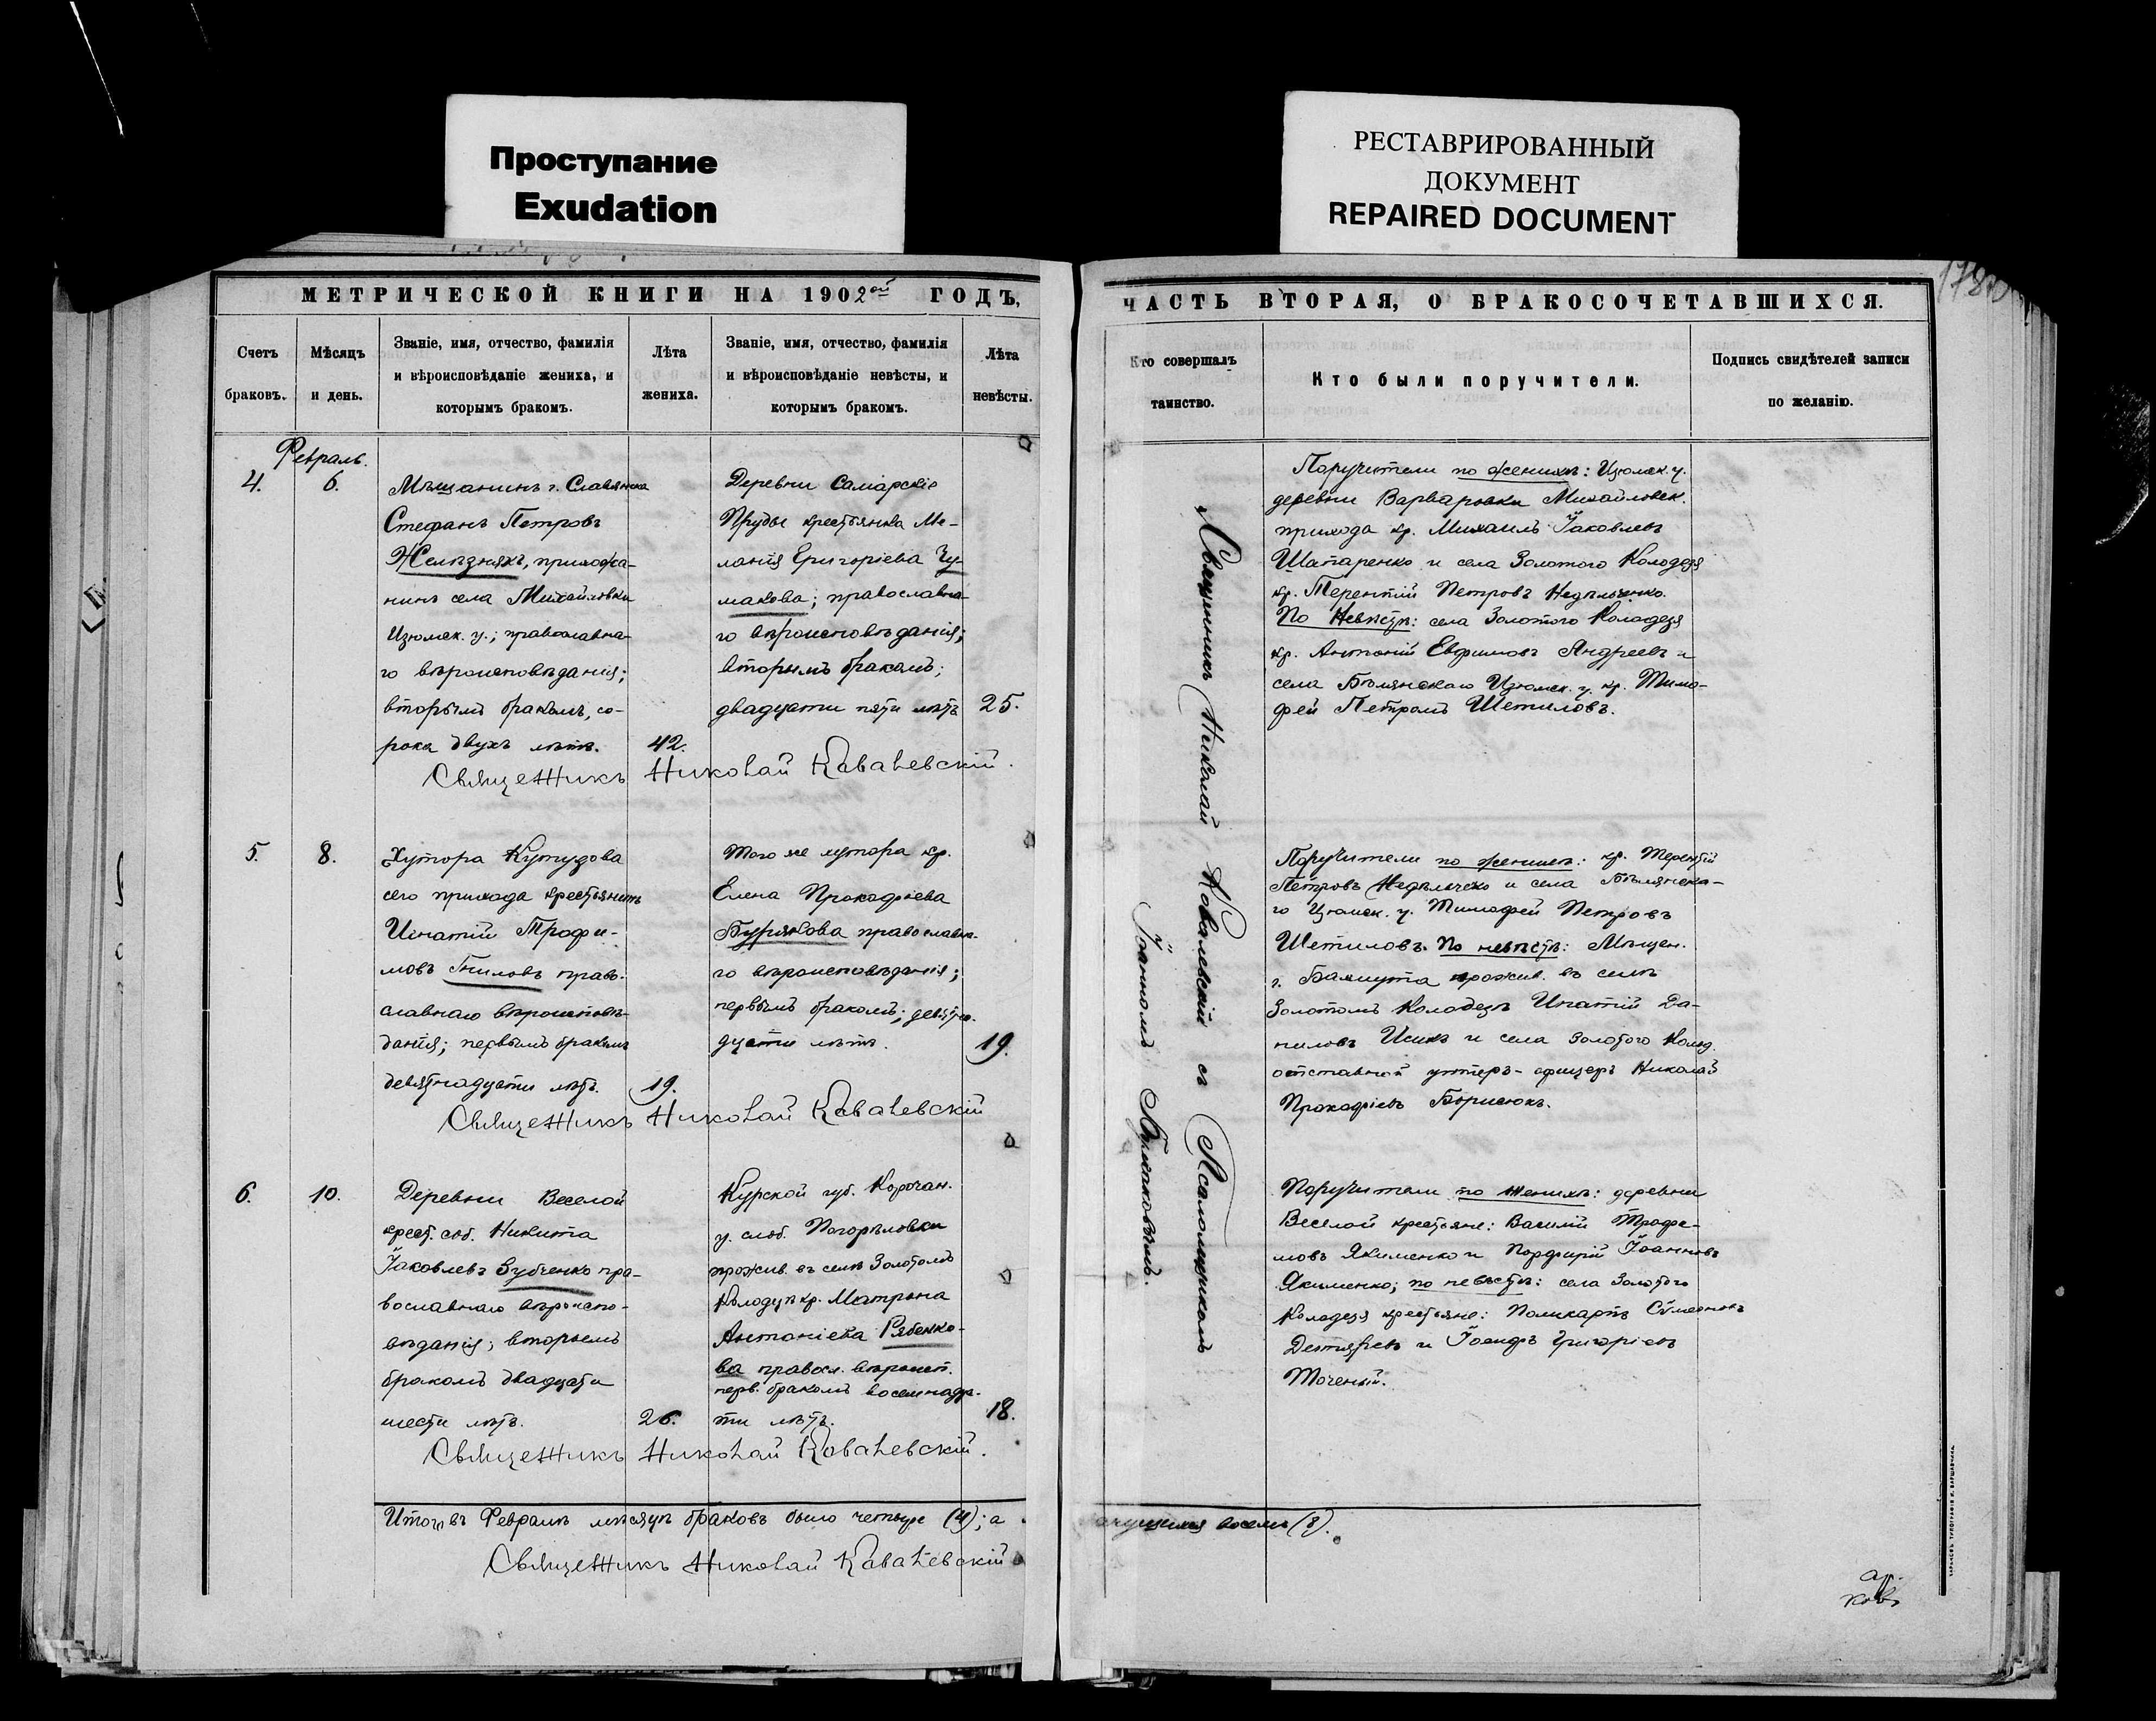 Проступание
Exudation
РЕСТАВРИРОВАННЫЙ
ДОКУМЕНТ
REPAIRED DOCUMENT
МЕТРИЧЕСКОЙ КНИГИ НА 1902ой ГОДЪ,
Счетъ
браковъ.
Мѣсяцъ
и день.
Званіе, имя, отчество, фамилія
и вѣроисповѣданіе жениха, и
которымъ бракомъ.
Лѣта
жениха.
Званіе, имя, отчество, фамилія
и вѣроисповѣданіе невѣсты, и
которымъ бракомъ.
Лѣта
невѣсты.
Февраль.
4.
6.
Мѣщанинъ г. Славянска
Стефанъ Петровъ
Желѣзнякъ, прихожа-
нинъ села Михайловки
Изюмск. у.; православна-
го вѣроисповѣданія;
вторымъ бракомъ, со-
рока двухъ лѣтъ.
42.
Деревни Самарскіе
Пруды крестьянка Ме-
ланія Григоріева Чу-
макова; православна-
го вѣроисповѣданія;
вторымъ бракомъ;
двадцати пяти лѣтъ
25.
Священникъ Николай Ковалевскій.
5.
8.
Хутора Кутузова
сего прихода крестьянинъ
Игнатій Трофи-
мовъ Гниловъ право-
славнаго вѣроисповѣ-
данія; первымъ бракомъ
девятнадцати лѣтъ.
19.
Того же хутора кр.
Елена Прокофіева
Бурякова православна-
го вѣроисповѣданія;
первымъ бракомъ; девятна-
дцати лѣтъ.
19.
Священникъ Николай Ковалевскій
6.
10.
Деревни Веселой
крест. соб. Никита
Іаковлевъ Зубченко пра-
вославнаго вѣроиспо-
вѣданія; вторымъ
бракомъ двадцати
шести лѣтъ.
26.
Курской губ. Корочан.
у. слоб. Погорѣловки
прожив. въ селѣ Золотомъ
Колодцѣ кр. Матрона
Антоніева Рябенко-
ва правосл. вѣроисп.
перв. бракомъ восемнадца-
ти лѣтъ.
18.
Священникъ Николай Ковалевскій.
Итого въ Февралѣ мѣсяцѣ браковъ было четыре (4); а
Священникъ Николай Ковалевскій
ЧАСТЬ ВТОРАЯ, О БРАКОСОЧЕТАВШИХСЯ.
Кто совершалъ
таинство.
Кто были поручители.
Подпись свидѣтелей записи
по желанію.
Священникъ Николай Ковалевскій съ Псаломщикомъ
Іоанномъ
Поручители по женихѣ: Изюмск. у.
деревни Варваровки Михайловск.
прихода кр. Михаилъ Іаковлевъ
Шапаренко и села Золотого Колодезя
кр. Терентій Петровъ Недѣльченко.
По невѣстѣ: села Золотого Колодезя
кр. Антоній Евфимовъ Андреевъ и
села Бѣлянскаго Изюмск. у. кр. Тимо-
фей Петровъ Шетиловъ.
Поручители по женихѣ: кр. Терентій
Петровъ Недѣльчеко и села Бѣлянска-
го Изюмск. у. Тимофей Петровъ
Шетиловъ. По невѣстѣ: Мѣщан.
г. Бахмута прожив. въ селѣ
Золотомъ Колодезѣ Игнатій Да-
ниловъ Исикъ и села Золотого Колод.
отставной унтеръ-офицеръ Николай
Прокофіевъ Борисюкъ.
Поручители по женихѣ: деревни
Веселой крестьяне: Василій Трофи-
мовъ Якименко и Порфирій Іоанновъ
Якименко; по невѣстѣ: села Золотого
Колодезя крестьяне: Поликарпъ Сѵмеоновъ
Дегтяревъ и Іосифъ Григоріевъ
Точеный.
восемь (8).